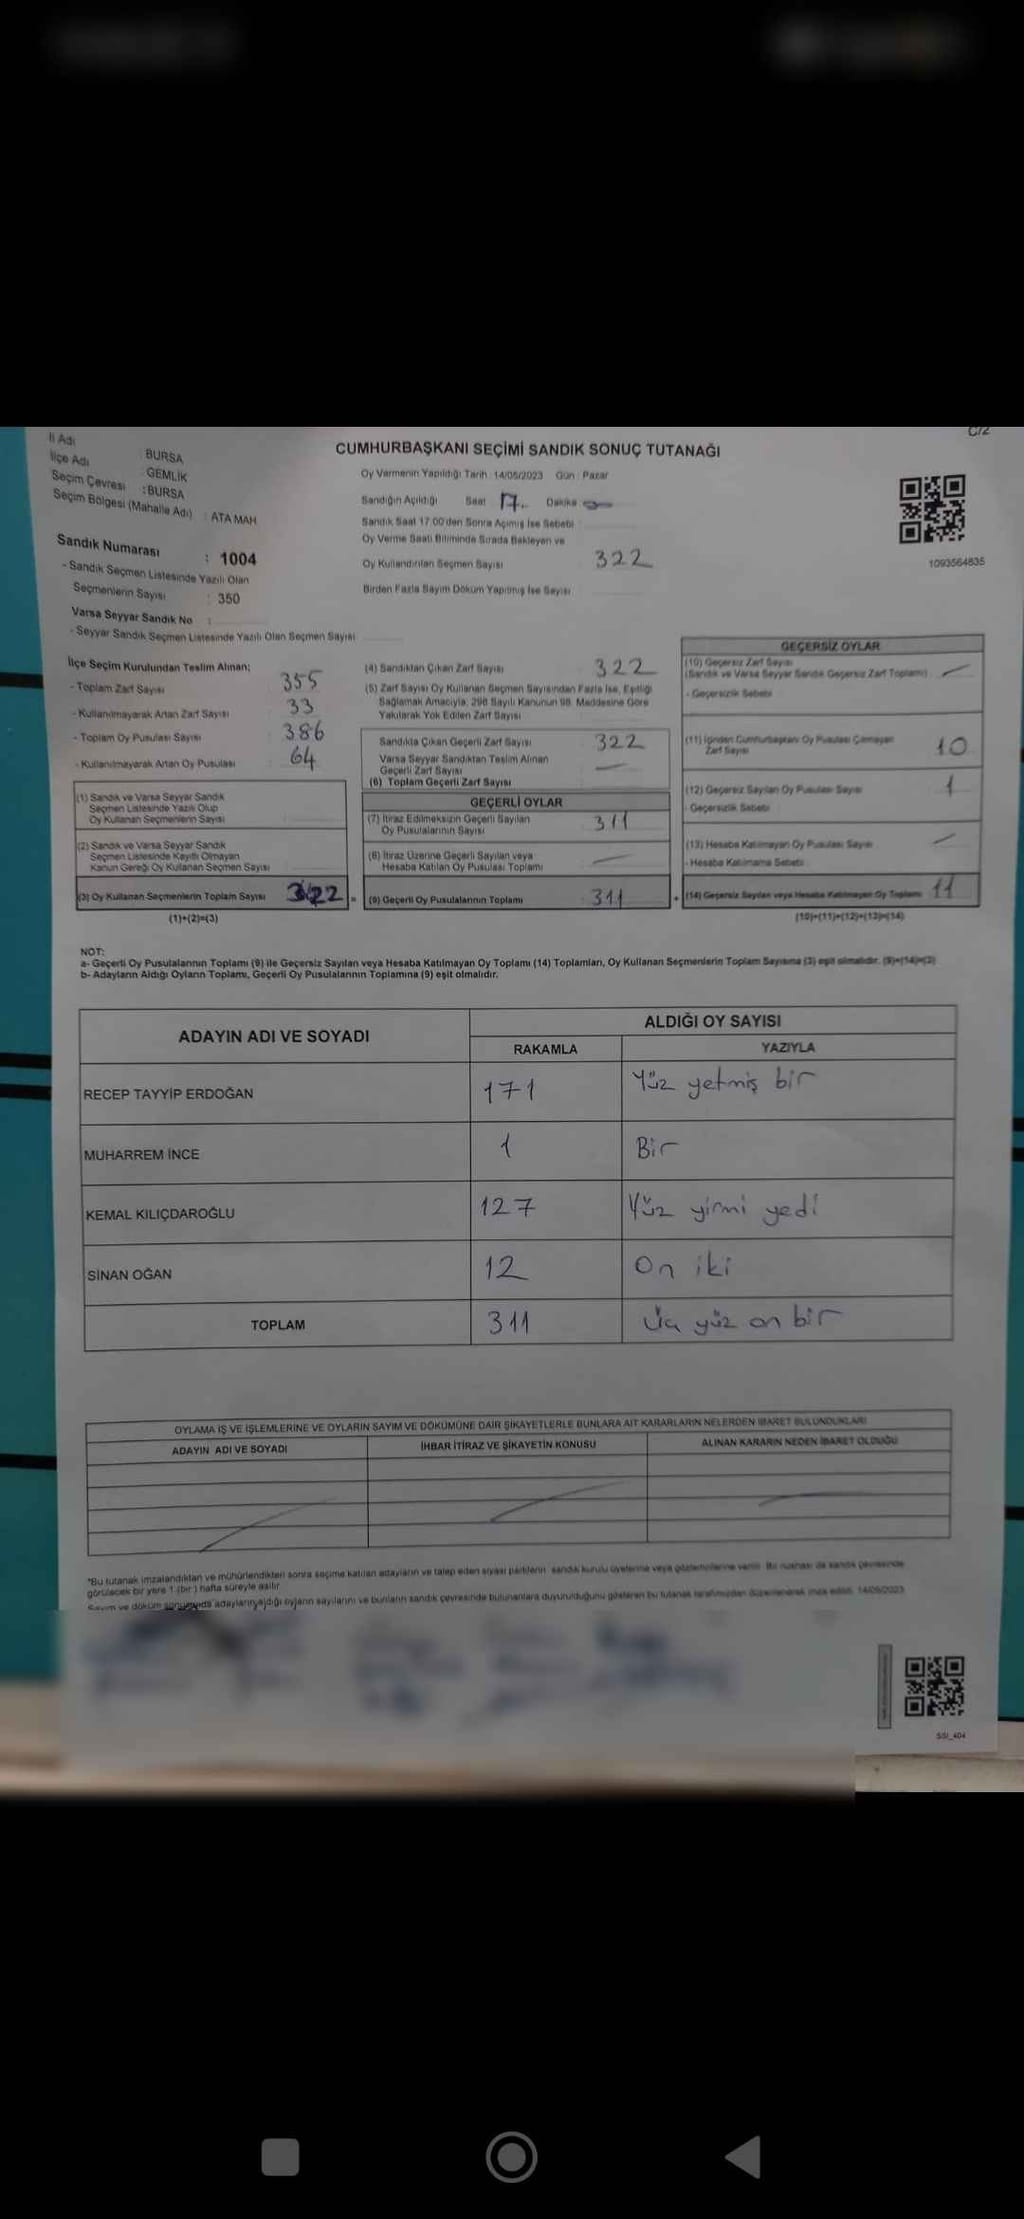 C/2
İl Adı
BURSA
CUMHURBAŞKANI SEÇİMİ SANDIK SONUÇ TUTANAĞI
İlçe Adı
GEMLİK
Oy Vermenin Yapıldığı Tarih 14/05/2023 Gün : Pazar
Seçim Çevresi : BURSA
Seçim Bölgesi (Mahalle Adı) : ATA MAH
Sandığın Açıldığı Saat 17. Dakika
Sandık Saat 17:00'den Sonra Açılmış İse Sebebi
Oy Verme Saati Bitiminde Sırada Bekleyen ve
Oy Kullandırılan Seçmen Sayısı 322
Birden Fazla Sayım Döküm Yapılmış İse Sayısı
1093564835
Sandık Numarası : 1004
- Sandık Seçmen Listesinde Yazılı Olan
Seçmenlerin Sayısı : 350
Varsa Seyyar Sandık No :
- Seyyar Sandık Seçmen Listesinde Yazılı Olan Seçmen Sayısı
İlçe Seçim Kurulundan Teslim Alınan;
- Toplam Zarf Sayısı 355
- Kullanılmayarak Artan Zarf Sayısı 33
- Toplam Oy Pusulası Sayısı 386
- Kullanılmayarak Artan Oy Pusulası 64
(1) Sandık ve Varsa Seyyar Sandık
Seçmen Listesinde Yazılı Olup
Oy Kullanan Seçmenlerin Sayısı
(2) Sandık ve Varsa Seyyar Sandık
Seçmen Listesinde Kayıtlı Olmayan
Kanun Gereği Oy Kullanan Seçmen Sayısı
(3) Oy Kullanan Seçmenlerin Toplam Sayısı 322 =
(1)+(2)=(3)
(4) Sandıktan Çıkan Zarf Sayısı 322
(5) Zarf Sayısı Oy Kullanan Seçmen Sayısından Fazla İse, Eşitliği
Sağlamak Amacıyla, 298 Sayılı Kanunun 98. Maddesine Göre
Yakılarak Yok Edilen Zarf Sayısı
Sandıkta Çıkan Geçerli Zarf Sayısı 322
Varsa Seyyar Sandıktan Teslim Alınan
Geçerli Zarf Sayısı
(6) Toplam Geçerli Zarf Sayısı
GEÇERLİ OYLAR
(7) İtiraz Edilmeksizin Geçerli Sayılan
Oy Pusulalarının Sayısı 311
(8) İtiraz Üzerine Geçerli Sayılan veya
Hesaba Katılan Oy Pusulası Toplamı
(9) Geçerli Oy Pusulalarının Toplamı 311 +
GEÇERSİZ OYLAR
(10) Geçersiz Zarf Sayısı
(Sandık ve Varsa Seyyar Sandık Geçersiz Zarf Toplamı)
- Geçersizlik Sebebi
(11) İçinden Cumhurbaşkanı Oy Pusulası Çıkmayan
Zarf Sayısı 10
(12) Geçersiz Sayılan Oy Pusulası Sayısı 1
- Geçersizlik Sebebi
(13) Hesaba Katılmayan Oy Pusulası Sayısı
- Hesaba Katılmama Sebebi
(14) Geçersiz Sayılan veya Hesaba Katılmayan Oy Toplamı 11
(10)+(11)+(12)+(13)=(14)
NOT:
a- Geçerli Oy Pusulalarının Toplamı (9) ile Geçersiz Sayılan veya Hesaba Katılmayan Oy Toplamı (14) Toplamları, Oy Kullanan Seçmenlerin Toplam Sayısına (3) eşit olmalıdır. (9)+(14)=(3)
b- Adayların Aldığı Oyların Toplamı, Geçerli Oy Pusulalarının Toplamına (9) eşit olmalıdır.
ADAYIN ADI VE SOYADI
ALDIĞI OY SAYISI
RAKAMLA YAZIYLA
RECEP TAYYİP ERDOĞAN 171 Yüz yetmiş bir
MUHARREM İNCE 1 Bir
KEMAL KILIÇDAROĞLU 127 Yüz yirmi yedi
SİNAN OĞAN 12 On iki
TOPLAM 311 Üç yüz on bir
OYLAMA İŞ VE İŞLEMLERİNE VE OYLARIN SAYIM VE DÖKÜMÜNE DAİR ŞİKAYETLERLE BUNLARA AİT KARARLARIN NELERDEN İBARET BULUNDUKLARI
ADAYIN ADI VE SOYADI İHBAR İTİRAZ VE ŞİKAYETİN KONUSU ALINAN KARARIN NEDEN İBARET OLDUĞU
*Bu tutanak imzalandıktan ve mühürlendikten sonra seçime katılan adayların ve talep eden siyasi partilerin sandık kurulu üyelerine veya gözlemcilerine verilir. Bir nüshası da sandık çevresinde
görülecek bir yere 1 (bir) hafta süreyle asılır
Sayım ve döküm sonucunda adayların aldığı oyların sayılarını ve bunların sandık çevresinde bulunanlara duyurulduğunu gösteren bu tutanak tarafımızdan düzenlenerek imza edildi. 14/05/2023
SSI_404